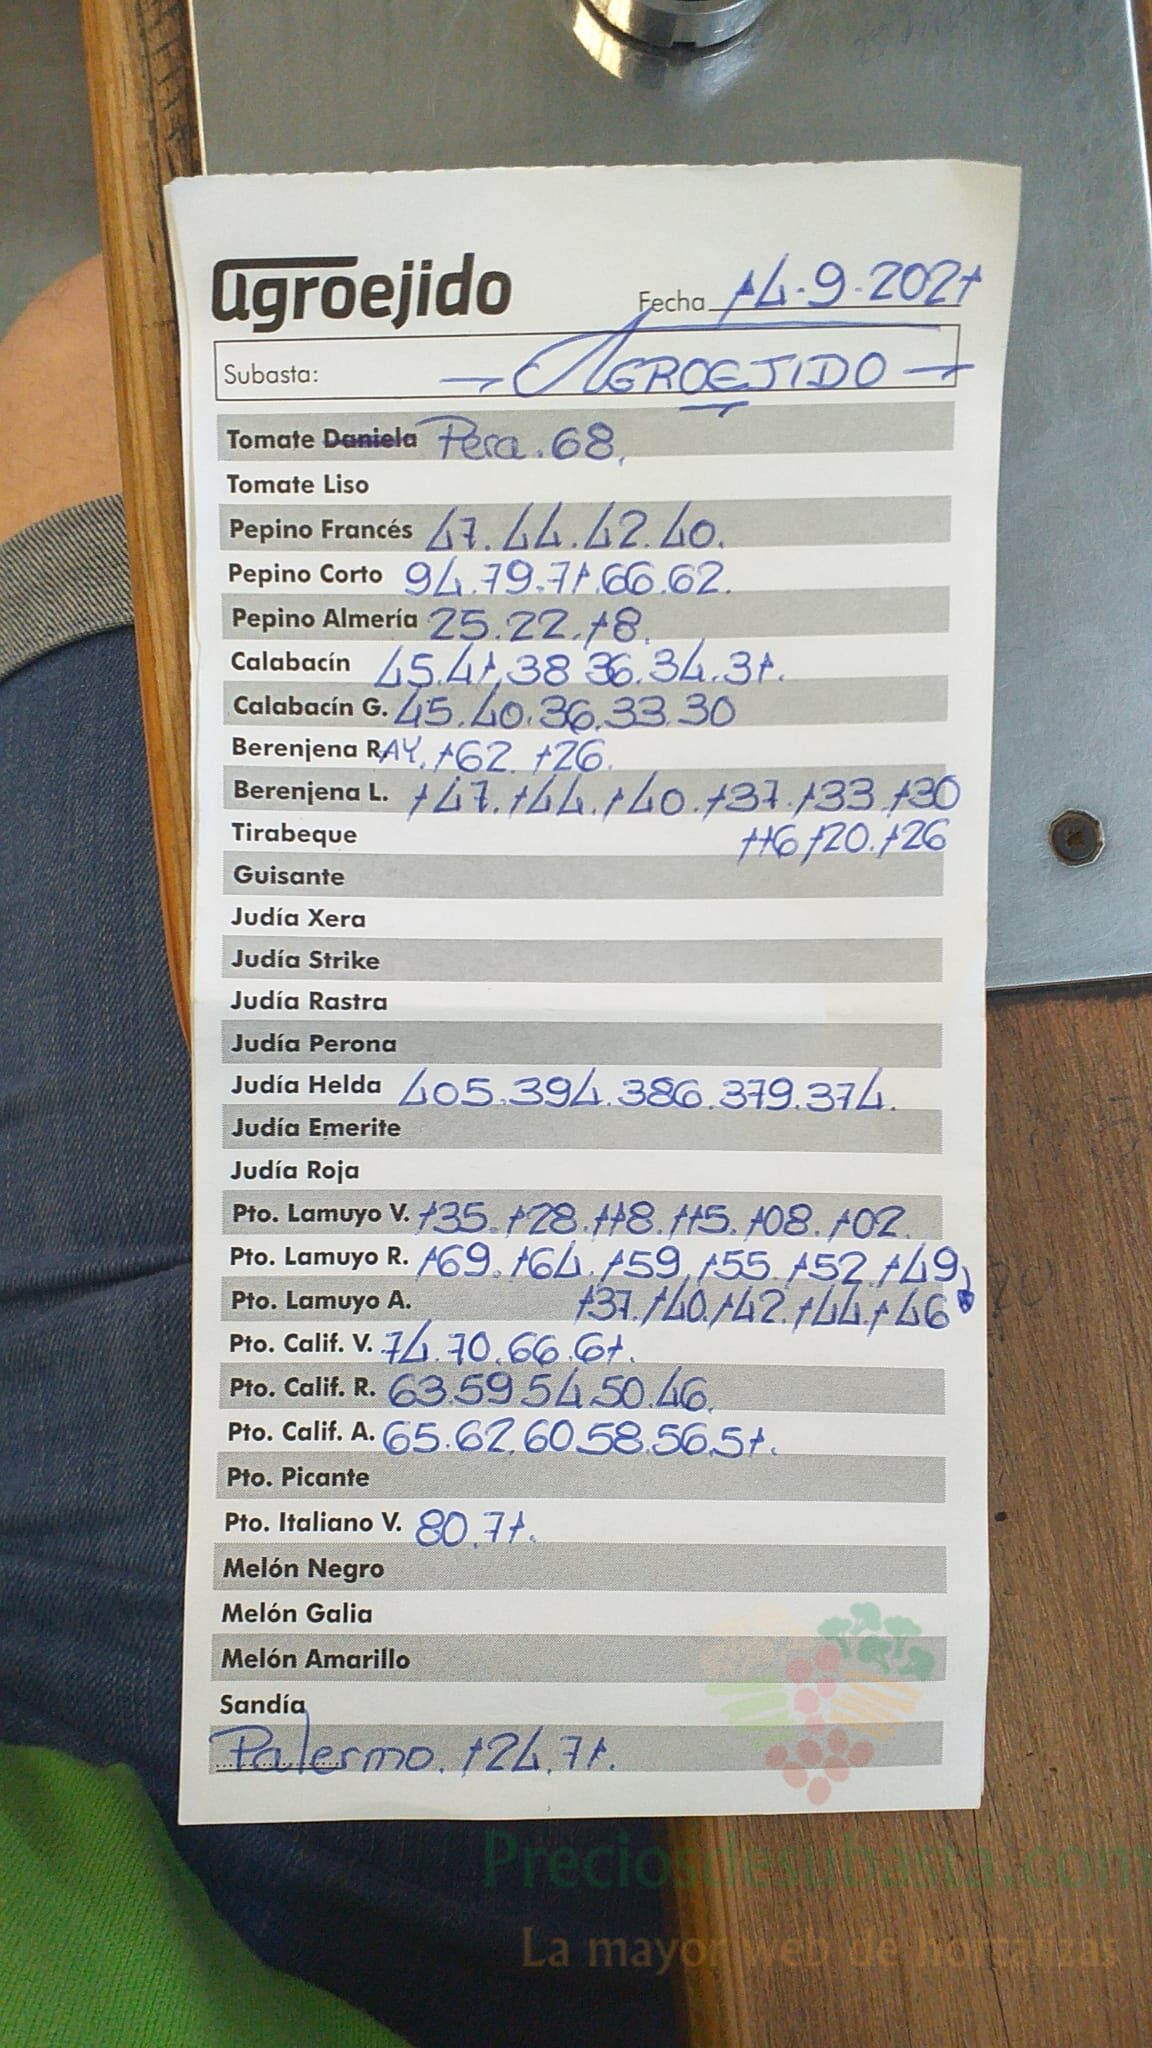 agroejido
Fecha 14-9-2021
Subasta: AGROEJIDO
Tomate Daniela Pera. 68.
Tomate Liso
Pepino Francés 47. 44. 42. 40.
Pepino Corto 94. 79. 71. 66. 62.
Pepino Almería 25. 22. 18.
Calabacín 45. 41. 38 36. 34. 31.
Calabacín G. 45. 40. 36. 33. 30
Berenjena RAY. 162. 126.
Berenjena L. 147. 144. 140. 137. 133. 130
Tirabeque 116 120. 126
Guisante
Judía Xera
Judía Strike
Judía Rastra
Judía Perona
Judía Helda 405. 394. 386. 379. 374.
Judía Emerite
Judía Roja
Pto. Lamuyo V. 135. 128. 118. 115. 108. 102.
Pto. Lamuyo R. 169. 164. 159. 155. 152. 149
Pto. Lamuyo A. 137. 140. 142. 144. 146
Pto. Calif. V. 74. 70. 66. 61.
Pto. Calif. R. 63. 59 54. 50. 46.
Pto. Calif. A. 65. 62. 60. 58. 56. 51.
Pto. Picante
Pto. Italiano V. 80. 71.
Melón Negro
Melón Galia
Melón Amarillo
Sandía
Palermo. 124. 71.
Preciosdesubasta.com
La mayor web de hortalizas